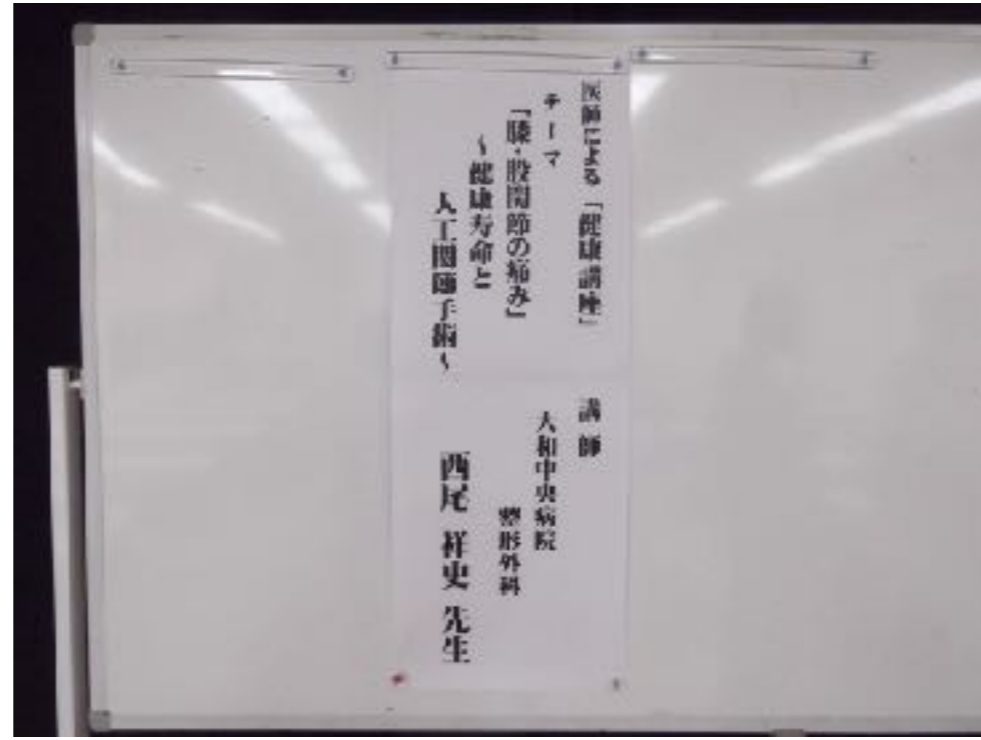 医師による「健康講座」
テーマ
「膝・股関節の痛み」
~健康寿命と
人工関節手術~
講師
大和中央病院
整形外科
西尾 祥史 先生